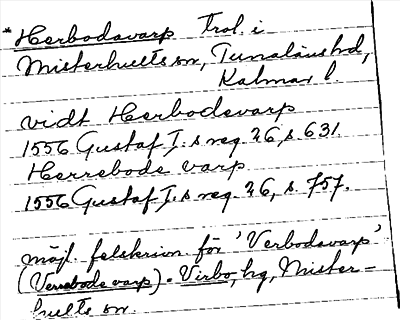 *Herbodavarp Trol. i
Misterhults sn, Tunaläns hd,
Kalmar l.
vidt Herbodevarp
1556 Gustaf I:s reg. 26, s. 631
Herrebode varp
1556 Gustaf I:s reg. 26, s. 757.
möjl. felskrivn för 'Verbodavarp'
(Verrebode varp). Virbo, hg, Mister-
hults sn.